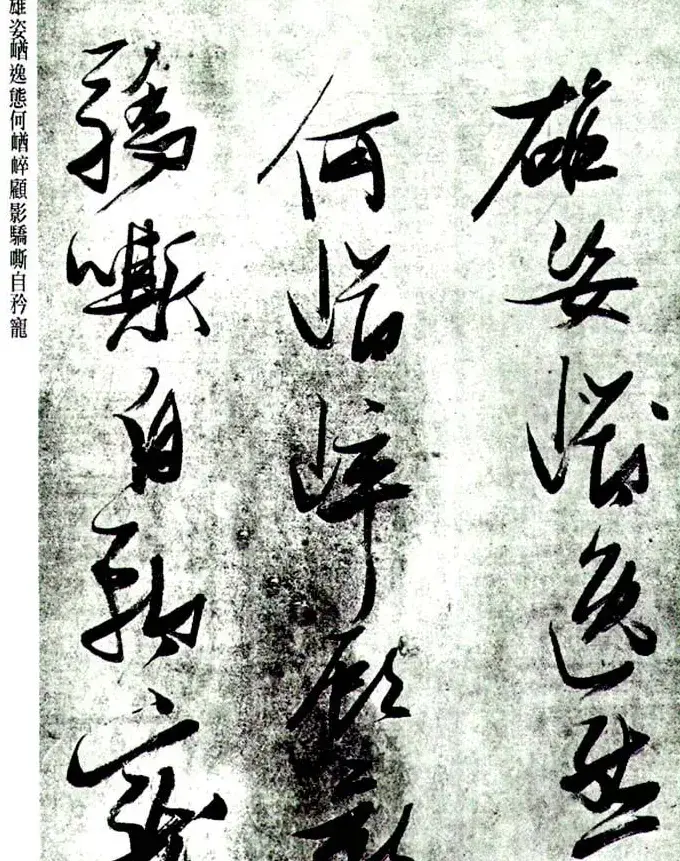 雄姿崷逸態
何崷崒顧影
驕嘶自矜寵
雄姿崷逸態何崷崒顧影驕嘶自矜寵